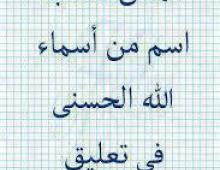 اسم من أسماء
الله الحسنى
في تعليق